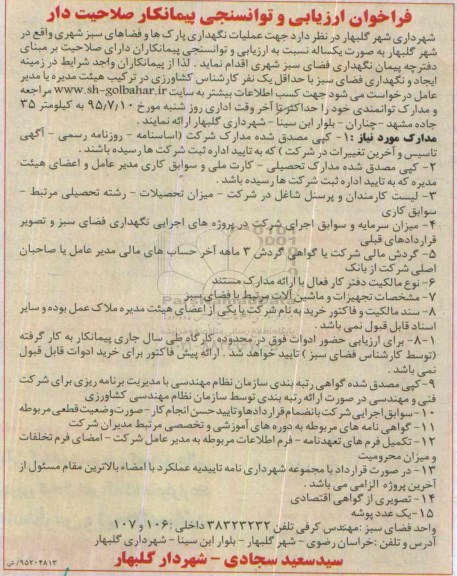 فراخوان ارزیابی و توانسنجی پیمانکار صلاحیت دار
شهرداری شهر گلبهار در نظر دارد جهت عملیات نگهداری پارک ها و فضاهای سبز شهری واقع در
شهر گلبهار به صورت یکساله نسبت به ارزیابی و توانسنجی پیمانکاران دارای صلاحیت بر مبنای
دفترچه پیمان نگهداری فضای سبز شهری اقدام نماید . لذا از پیمانکاران واجد شرایط در زمینه
ایجاد و نگهداری فضای سبز با حداقل یک نفر کارشناس کشاورزی در ترکیب هیئت مدیره یا مدیر
عامل درخواست می شود جهت کسب اطلاعات بیشتر به سایت www.sh-golbahar.ir مراجعه
و مدارک توانمندی خود را حداکثر تا آخر وقت اداری روز شنبه مورخ ۹۵/۷/۱۰ به کیلومتر ۳۵
جاده مشهد -چناران - بلوار ابن سینا - شهرداری گلبهار ارائه نمایند .
مدارک مورد نیاز :۱- کپی مصدق شده مدارک شرکت (اساسنامه - روزنامه رسمی - آگهی
تاسیس و آخرین تغییرات در شرکت ) که به تایید اداره ثبت شرکت ها رسیده باشند .
۲- کپی مصدق شده مدارک تحصیلی - کارت ملی و سوابق کاری مدیر عامل و اعضای هیئت
مدیره که به تایید اداره ثبت شرکت ها رسیده باشد .
۳- لیست کارمندان و پرسنل شاغل در شرکت - میزان تحصیلات - رشته تحصیلی مرتبط -
سوابق کاری
۴- میزان سرمایه و سوابق اجرای شرکت در پروژه های اجرایی نگهداری فضای سبز و تصویر
قراردادهای قبلی
۵- گردش مالی شرکت یا گواهی گردش ۳ ماهه آخر حساب های مالی مدیر عامل یا صاحبان
اصلی شرکت از بانک
۶- نوع مالکیت دفتر کار فعال با ارائه مدارک مستند
۷- مشخصات تجهیزات و ماشین آلات مرتبط با فضای سبز
۸- سند مالکیت و فاکتور خرید به نام شرکت یا یکی از اعضای هیئت مدیره ملاک عمل بوده و سایر
اسناد قابل قبول نمی باشد .
۸-۱- برای ارزیابی حضور ادوات فوق در محدوده کارگاه طی سال جاری پیمانکار به کار گرفته
(توسط کارشناس فضای سبز ) تایید خواهد شد . ارائه پیش فاکتور برای خرید ادوات قابل قبول
نمی باشد .
۹-کپی مصدق شده گواهی رتبه بندی سازمان نظام مهندسی با مدیریت برنامه ریزی برای شرکت
فنی و مهندسی در صورت ارائه رتبه بندی توسط سازمان نظام مهندسی کشاورزی
۱۰-سوابق اجرایی شرکت بانضمام قراردادها و تایید حسن انجام کار - صورت وضعیت قطعی مربوطه
۱۱- گواهی نامه های مربوطه به دوره های آموزشی و تخصصی مرتبط مدیران شرکت
۱۲- تکمیل فرم های تعهدنامه - فرم اطلاعات مربوطه به مدیر عامل شرکت - امضای فرم تخلفات
و میزان محرومیت
۱۳- در صورت قرارداد با مجموعه شهرداری نامه تاییدیه عملکرد با امضاء بالاترین مقام مسئول از
آخرین پروژه الزامی می باشد .
۱۴- تصویری از گواهی اقتصادی
۱۵-یک عدد پوشه
واحد فضای سبز :مهندس کرفی تلفن ۳۸۳۲۳۲۳۲ داخلی :۱۰۶ و ۱۰۷
آدرس و تلفن :خراسان رضوی - شهر گلبهار - بلوار ابن سینا - شهرداری گلبهار
سیدسعید سجادی - شهردار گلبهار
۹۵۲۰۴۸۱۳/ش